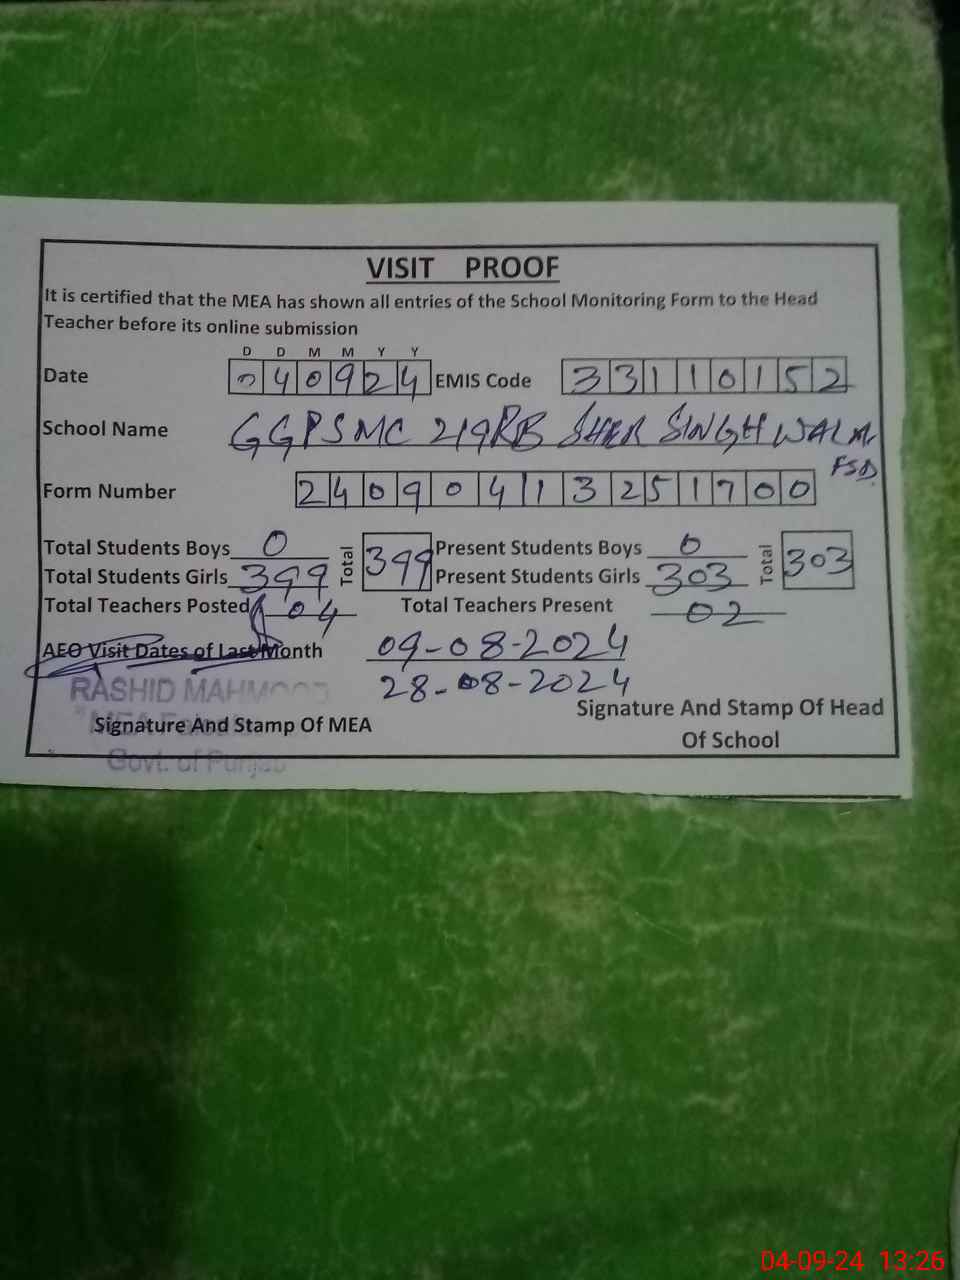 VISIT PROOF
It is certified that the MEA has shown all entries of the School Monitoring Form to the Head
Teacher before its online submission
D D M M Y Y
Date 040924 EMIS Code 33110152
School Name GGPSMC 219RB SHER SINGH WALA
FSD.
Form Number 24090413251700
Total Students Boys 0 Total 399 Present Students Boys 0 Total 303
Total Students Girls 399 Present Students Girls 303
Total Teachers Posted 04 Total Teachers Present 02
AEO Visit Dates of Last Month 09-08-2024
28-08-2024
RASHID MAHMOOD
Signature And Stamp Of MEA
Signature And Stamp Of Head
Of School
MEA
Govt. of Punjab
04-09-24 13:26